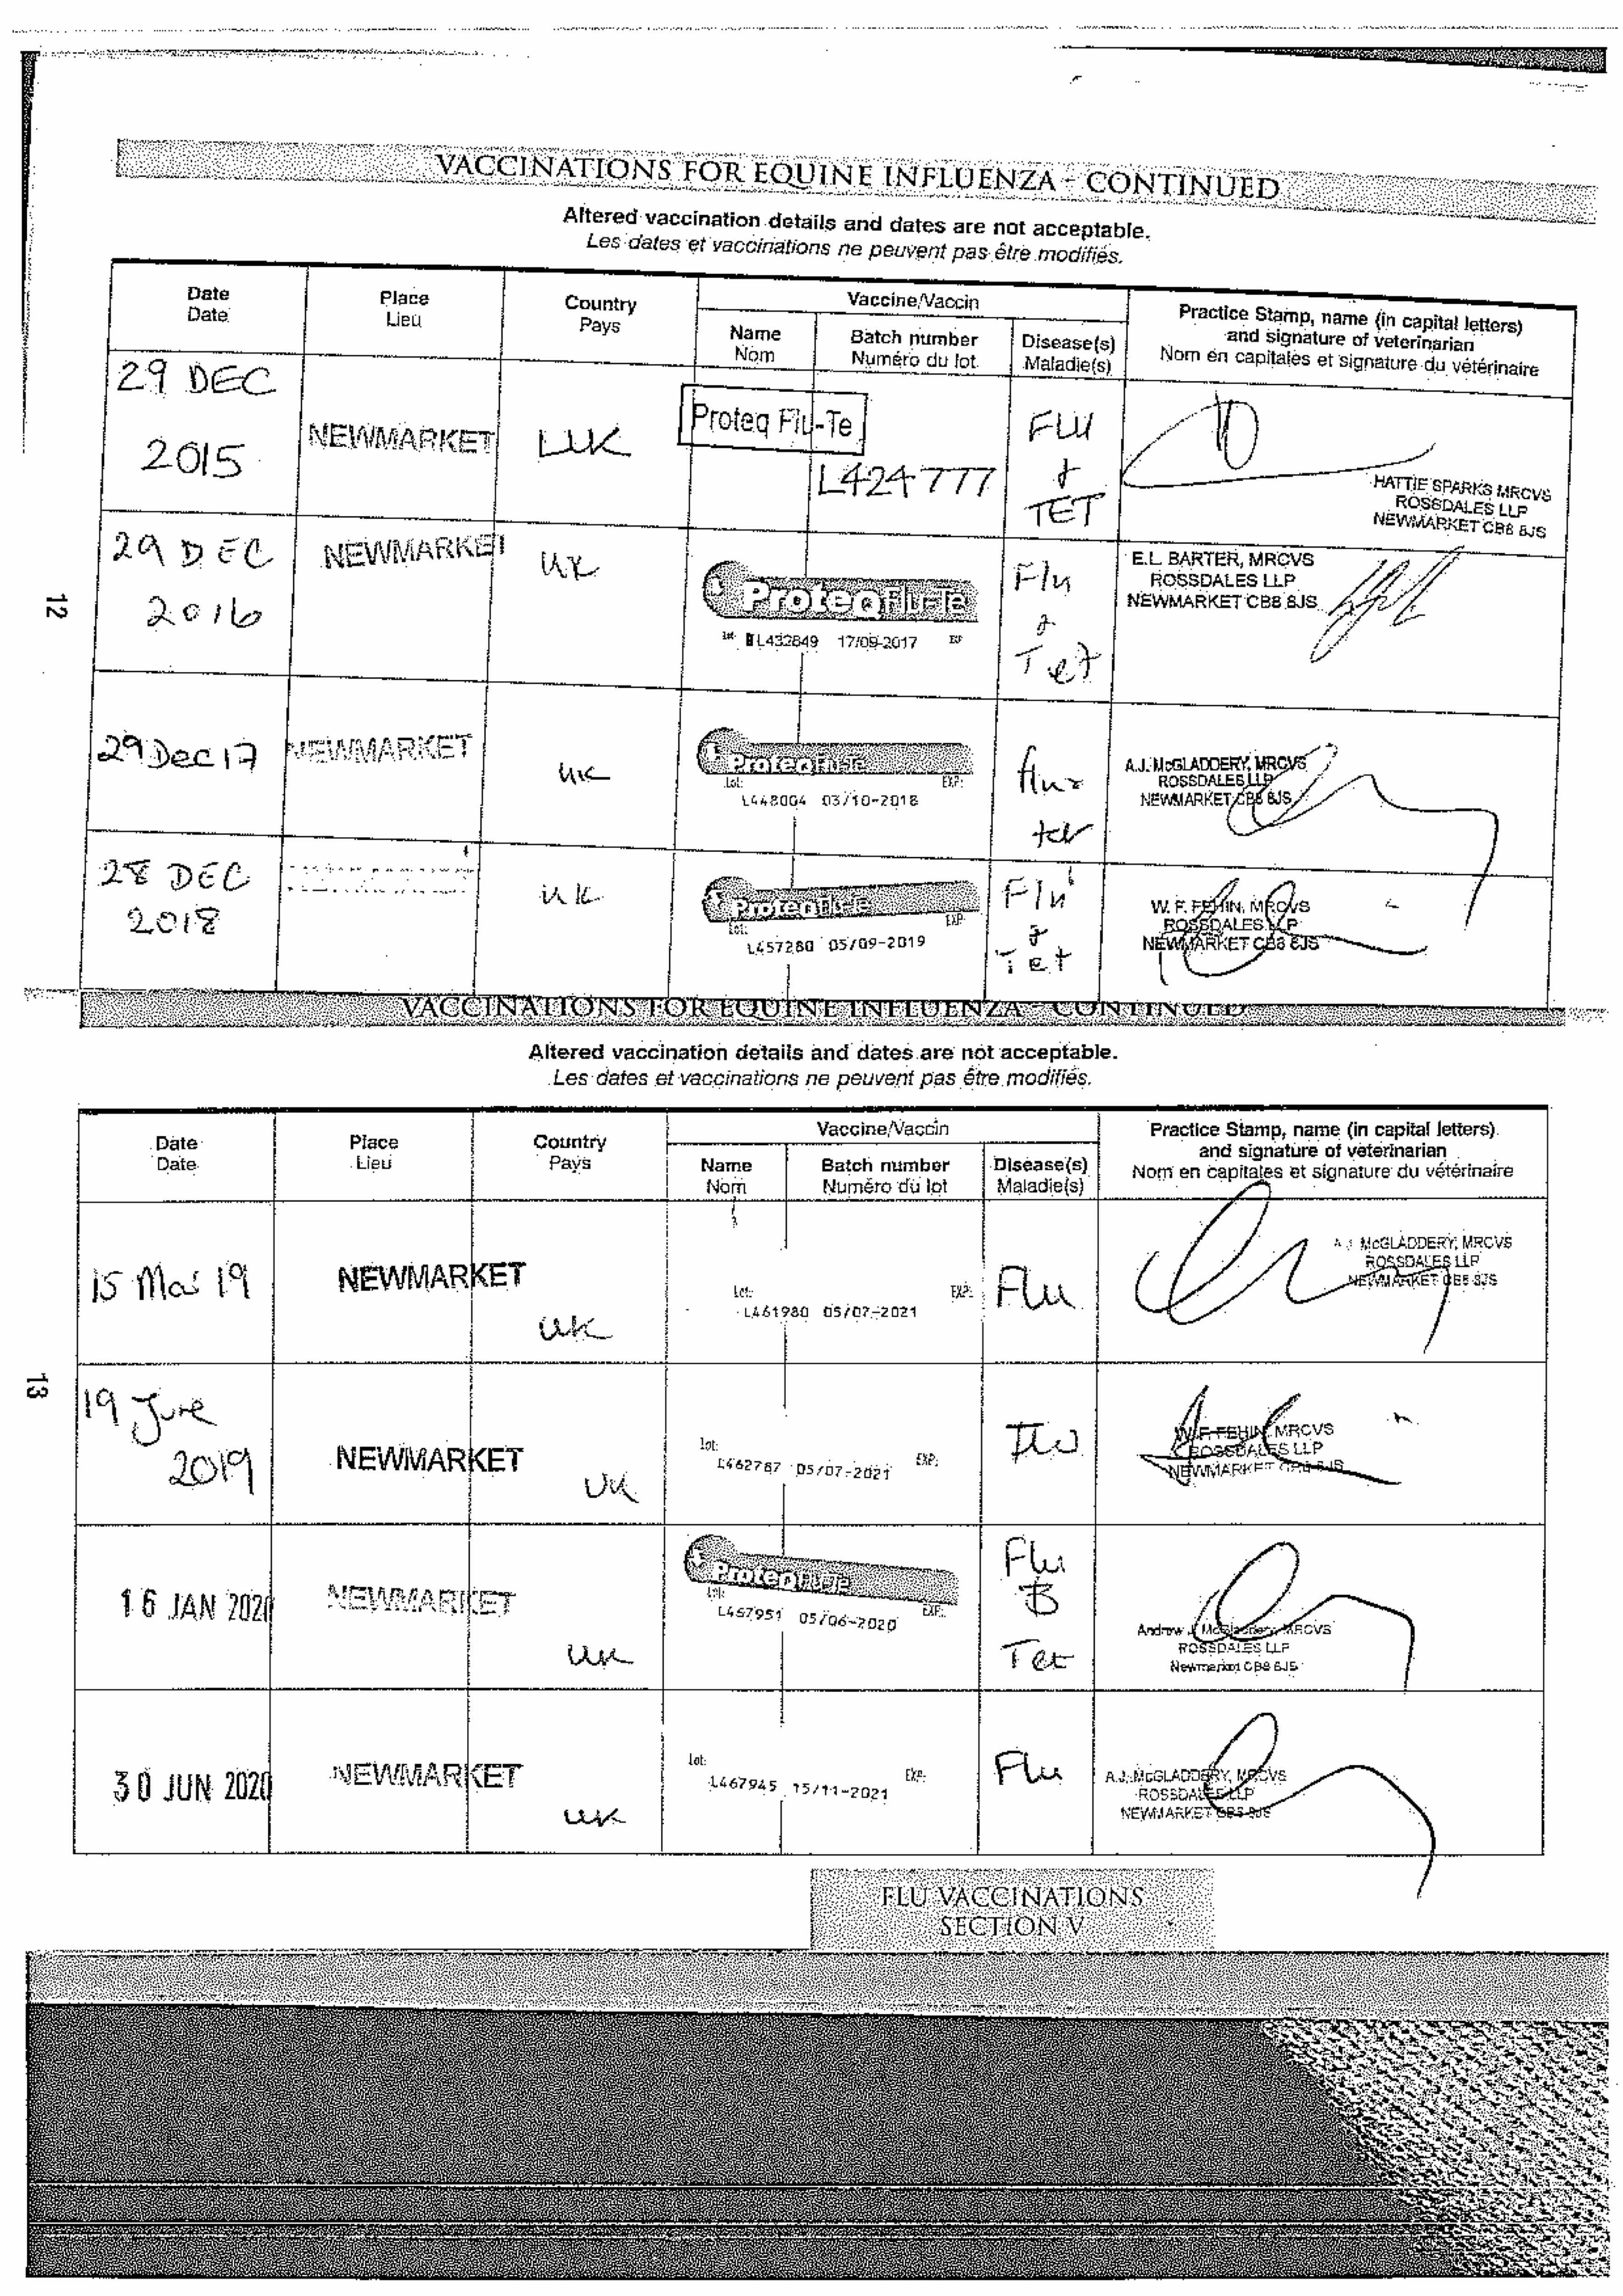 VACCINATIONS FOR EQUINE INFLUENZA - CONTINUED
Altered vaccination details and dates are not acceptable.
Les dates et vaccinations ne peuvent pas être modifiés.
Date Place Country Vaccine/Vaccin Practice Stamp, name (in capital letters)
Date Lieu Pays and signature of veterinarian
Name Batch number Disease(s) Nom en capitales et signature du vétérinaire
Nom Numéro du lot Maladie(s)
29 DEC
2015 NEWMARKET UK Proteq Flu-Te FLU
L424777 &
TET
HATTIE SPARKS MRCVS
ROSSDALES LLP
NEWMARKET CB8 8JS
29 DEC NEWMARKET UK
2016
ProteqFlu-Te
L432849 17/09-2017
Flu
&
Tet
E.L. BARTER, MRCVS
ROSSDALES LLP
NEWMARKET CB8 8JS
12
29 Dec 17 NEWMARKET UK
ProteqFlu-Te
Lot: EXP:
L448004 03/10-2018
flu &
tet
A.J. McGLADDERY, MRCVS
ROSSDALES LLP
NEWMARKET CB8 8JS
28 DEC
2018 UK
ProteqFlu-Te
Lot: EXP:
L457280 05/09-2019
Flu
&
Tet
W. F. FEHIN, MRCVS
ROSSDALES LLP
NEWMARKET CB8 8JS
VACCINATIONS FOR EQUINE INFLUENZA - CONTINUED
Altered vaccination details and dates are not acceptable.
Les dates et vaccinations ne peuvent pas être modifiés.
Date Place Country Vaccine/Vaccin Practice Stamp, name (in capital letters)
Date Lieu Pays and signature of veterinarian
Name Batch number Disease(s) Nom en capitales et signature du vétérinaire
Nom Numéro du lot Maladie(s)
15 Mar 19 NEWMARKET
UK
Lot: EXP:
L461980 05/07-2021
Flu
A.J. McGLADDERY, MRCVS
ROSSDALES LLP
NEWMARKET CB8 8JS
13
19 June
2019 NEWMARKET
UK
Lot: EXP:
L462787 05/07-2021
W. F. FEHIN, MRCVS
ROSSDALES LLP
NEWMARKET CB8 8JS
16 JAN 2020 NEWMARKET
UK
ProteqFlu-Te
Lot: EXP:
L467951 05/06-2020
Flu
&
Tet
Andrew J. McGladdery, MRCVS
ROSSDALES LLP
Newmarket CB8 8JS
30 JUN 2020 NEWMARKET
UK
Lot: EXP:
L467945 15/11-2021
Flu
A.J. McGLADDERY, MRCVS
ROSSDALES LLP
NEWMARKET CB8 8JS
FLU VACCINATIONS
SECTION V